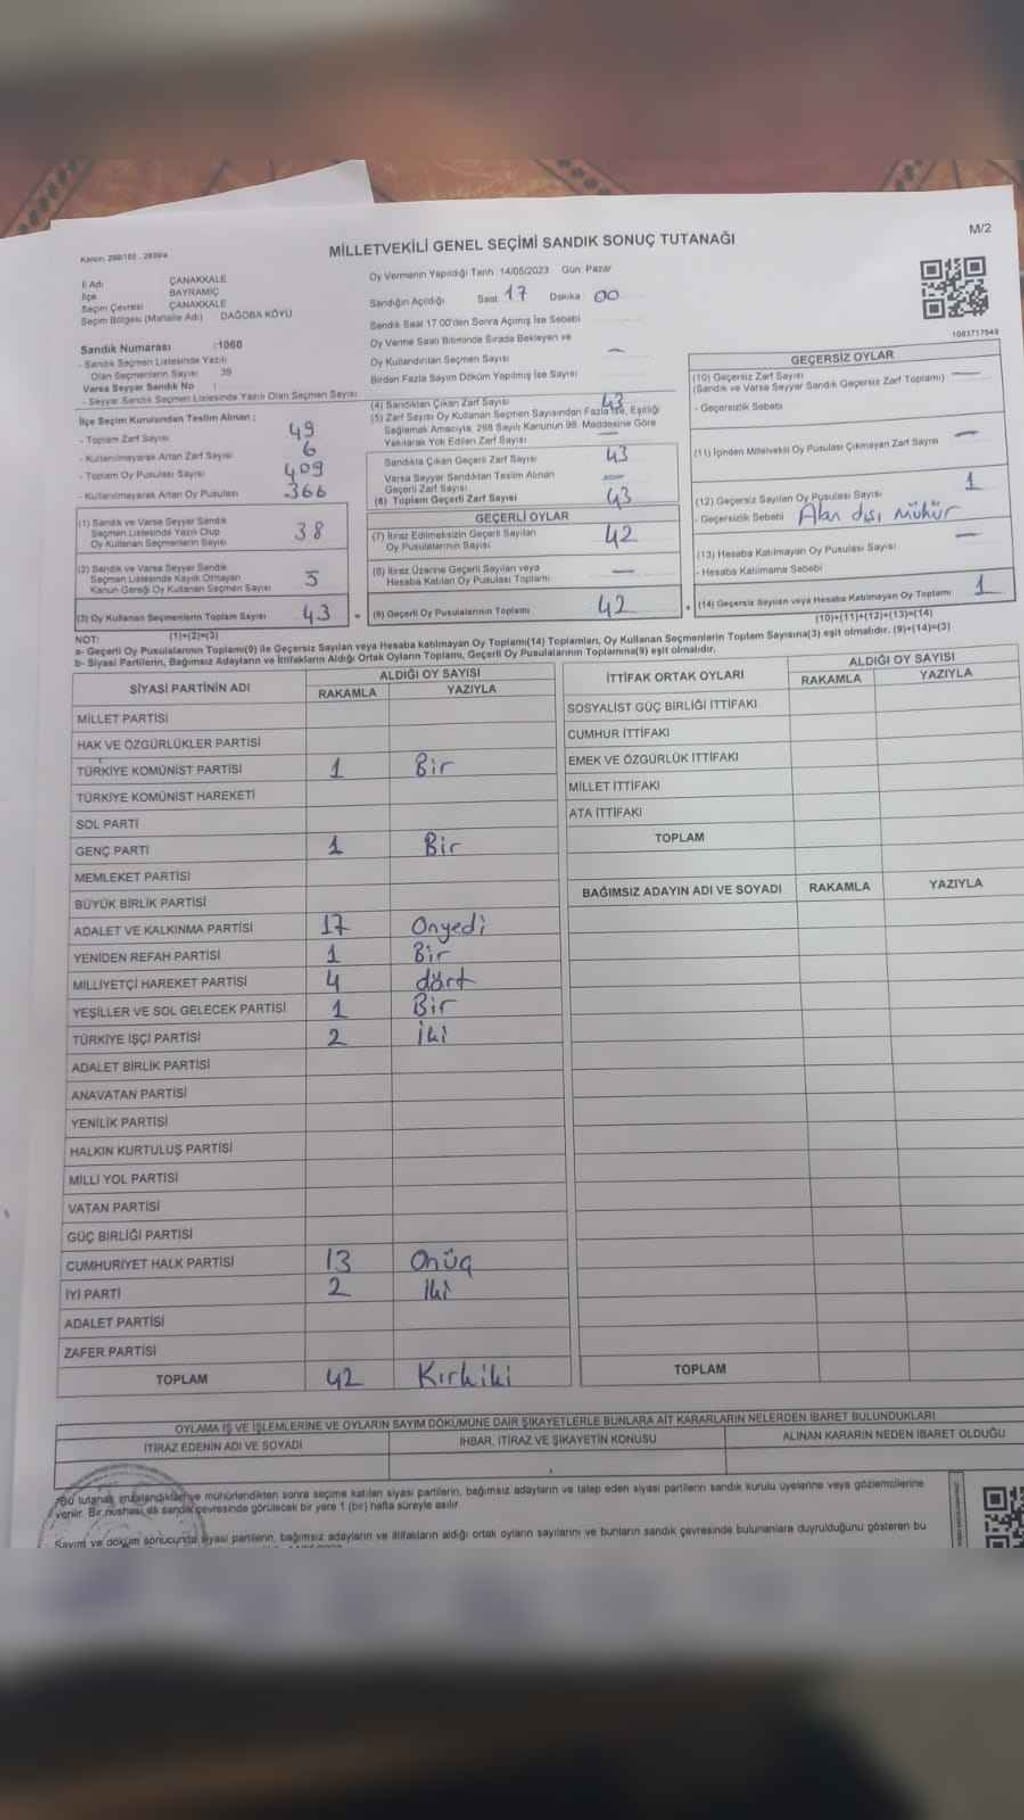 M/2
MİLLETVEKİLİ GENEL SEÇİMİ SANDIK SONUÇ TUTANAĞI
İl Adı ÇANAKKALE
İlçe BAYRAMİÇ
Seçim Çevresi ÇANAKKALE
Seçim Bölgesi (Mahalle Adı) DAĞOBA KÖYÜ
Oy Vermenin Yapıldığı Tarih 14/05/2023 Gün: Pazar
Sandığın Açıldığı Saat 17 Dakika 00
Sandık Saat 17 00'den Sonra Açılmış İse Sebebi
Oy Verme Saati Bitiminde Sırada Bekleyen ve
Oy Kullandırılan Seçmen Sayısı —
Birden Fazla Sayım Döküm Yapılmış İse Sayısı
1083717849
Sandık Numarası :1060
- Sandık Seçmen Listesinde Yazılı
Olan Seçmenlerin Sayısı 39
Varsa Seyyar Sandık No :
- Seyyar Sandık Seçmen Listesinde Yazılı Olan Seçmen Sayısı
İlçe Seçim Kurulundan Teslim Alınan :
- Toplam Zarf Sayısı 49
- Kullanılmayarak Artan Zarf Sayısı 6
- Toplam Oy Pusulası Sayısı 409
- Kullanılmayarak Artan Oy Pusulası 366
(1) Sandık ve Varsa Seyyar Sandık
Seçmen Listesinde Yazılı Olup
Oy Kullanan Seçmenlerin Sayısı 38
(2) Sandık ve Varsa Seyyar Sandık
Seçmen Listesinde Kayıtlı Olmayan
Kanun Gereği Oy Kullanan Seçmen Sayısı 5
(3) Oy Kullanan Seçmenlerin Toplam Sayısı 43
(1)+(2)=(3)
(4) Sandıktan Çıkan Zarf Sayısı 43
(5) Zarf Sayısı Oy Kullanan Seçmen Sayısından Fazla İse, Eşitliği
Sağlamak Amacıyla, 298 Sayılı Kanunun 98. Maddesine Göre
Yakılarak Yok Edilen Zarf Sayısı —
Sandıkta Çıkan Geçerli Zarf Sayısı 43
Varsa Seyyar Sandıktan Teslim Alınan
Geçerli Zarf Sayısı —
(6) Toplam Geçerli Zarf Sayısı 43
GEÇERLİ OYLAR
(7) İtiraz Edilmeksizin Geçerli Sayılan
Oy Pusulalarının Sayısı 42
(8) İtiraz Üzerine Geçerli Sayılan veya
Hesaba Katılan Oy Pusulası Toplamı —
= (9) Geçerli Oy Pusulalarının Toplamı 42
GEÇERSİZ OYLAR
(10) Geçersiz Zarf Sayısı —
(Sandık ve Varsa Seyyar Sandık Geçersiz Zarf Toplamı)
- Geçersizlik Sebebi
(11) İçinden Milletvekili Oy Pusulası Çıkmayan Zarf Sayısı —
(12) Geçersiz Sayılan Oy Pusulası Sayısı 1
- Geçersizlik Sebebi Alan dışı Mühür
(13) Hesaba Katılmayan Oy Pusulası Sayısı —
- Hesaba Katılmama Sebebi
+ (14) Geçersiz Sayılan veya Hesaba Katılmayan Oy Toplamı 1
(10)+(11)+(12)+(13)=(14)
NOT:
a- Geçerli Oy Pusulalarının Toplamı(9) ile Geçersiz Sayılan veya Hesaba katılmayan Oy Toplamı(14) Toplamları, Oy Kullanan Seçmenlerin Toplam Sayısına(3) eşit olmalıdır. (9)+(14)=(3)
b- Siyasi Partilerin, Bağımsız Adayların ve İttifakların Aldığı Ortak Oyların Toplamı, Geçerli Oy Pusulalarının Toplamına(9) eşit olmalıdır.
SİYASİ PARTİNİN ADI ALDIĞI OY SAYISI
RAKAMLA YAZIYLA
MİLLET PARTİSİ
HAK VE ÖZGÜRLÜKLER PARTİSİ
TÜRKİYE KOMÜNİST PARTİSİ 1 Bir
TÜRKİYE KOMÜNİST HAREKETİ
SOL PARTİ
GENÇ PARTİ 1 Bir
MEMLEKET PARTİSİ
BÜYÜK BİRLİK PARTİSİ
ADALET VE KALKINMA PARTİSİ 17 Onyedi
YENİDEN REFAH PARTİSİ 1 Bir
MİLLİYETÇİ HAREKET PARTİSİ 4 dört
YEŞİLLER VE SOL GELECEK PARTİSİ 1 Bir
TÜRKİYE İŞÇİ PARTİSİ 2 İki
ADALET BİRLİK PARTİSİ
ANAVATAN PARTİSİ
YENİLİK PARTİSİ
HALKIN KURTULUŞ PARTİSİ
MİLLİ YOL PARTİSİ
VATAN PARTİSİ
GÜÇ BİRLİĞİ PARTİSİ
CUMHURİYET HALK PARTİSİ 13 Onüç
İYİ PARTİ 2 İki
ADALET PARTİSİ
ZAFER PARTİSİ
TOPLAM 42 Kırkiki
İTTİFAK ORTAK OYLARI ALDIĞI OY SAYISI
RAKAMLA YAZIYLA
SOSYALİST GÜÇ BİRLİĞİ İTTİFAKI
CUMHUR İTTİFAKI
EMEK VE ÖZGÜRLÜK İTTİFAKI
MİLLET İTTİFAKI
ATA İTTİFAKI
TOPLAM
BAĞIMSIZ ADAYIN ADI VE SOYADI RAKAMLA YAZIYLA
TOPLAM
OYLAMA İŞ VE İŞLEMLERİNE VE OYLARIN SAYIM DÖKÜMÜNE DAİR ŞİKAYETLERLE BUNLARA AİT KARARLARIN NELERDEN İBARET BULUNDUKLARI
İTİRAZ EDENİN ADI VE SOYADI İHBAR, İTİRAZ VE ŞİKAYETİN KONUSU ALINAN KARARIN NEDEN İBARET OLDUĞU
mühürlendikten sonra seçime katılan siyasi partilerin, bağımsız adayların ve talep eden siyasi partilerin sandık kurulu üyelerine veya gözlemcilerine
verilir. Bir nüshası da sandık çevresinde görülecek bir yere 1 (bir) hafta süreyle asılır.
Sayım ve döküm sonucunda siyasi partilerin, bağımsız adayların ve ittifakların aldığı ortak oyların sayılarını ve bunların sandık çevresinde bulunanlara duyurulduğunu gösteren bu